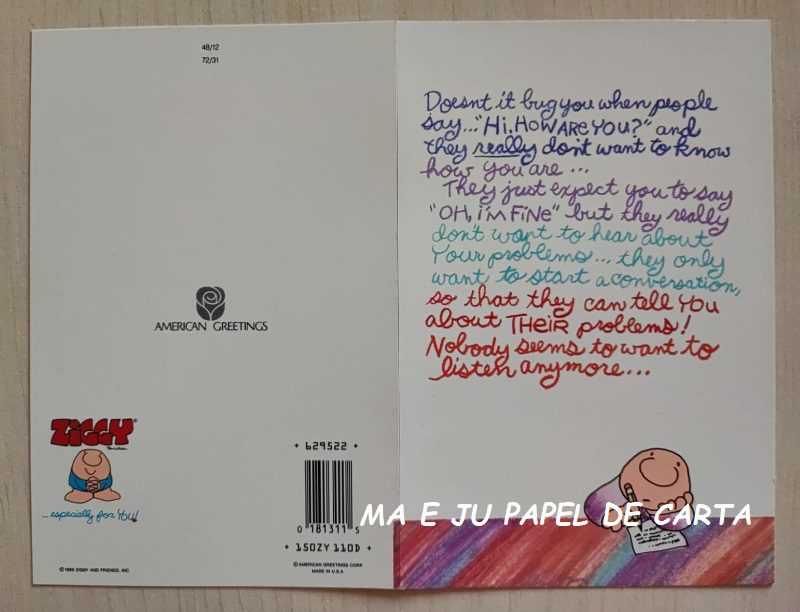 48/12
72/31
AMERICAN GREETINGS
ZIGGY®
...especially for YOU!
629522
0 181311 5
150ZY 110D
© 1989 ZIGGY AND FRIENDS, INC.
© AMERICAN GREETINGS CORP.
MADE IN U.S.A.
Doesnt it bug you when people
say..."Hi. HOW ARE YOU?" and
they really don't want to know
how you are ...
They just expect you to say
"OH, i'm FiNe" but they really
don't want to hear about
Your problems... they only
want to start a conversation,
so that they can tell YOU
about THeiR problems!
Nobody seems to want to
listen anymore...
MA E JU PAPEL DE CARTA